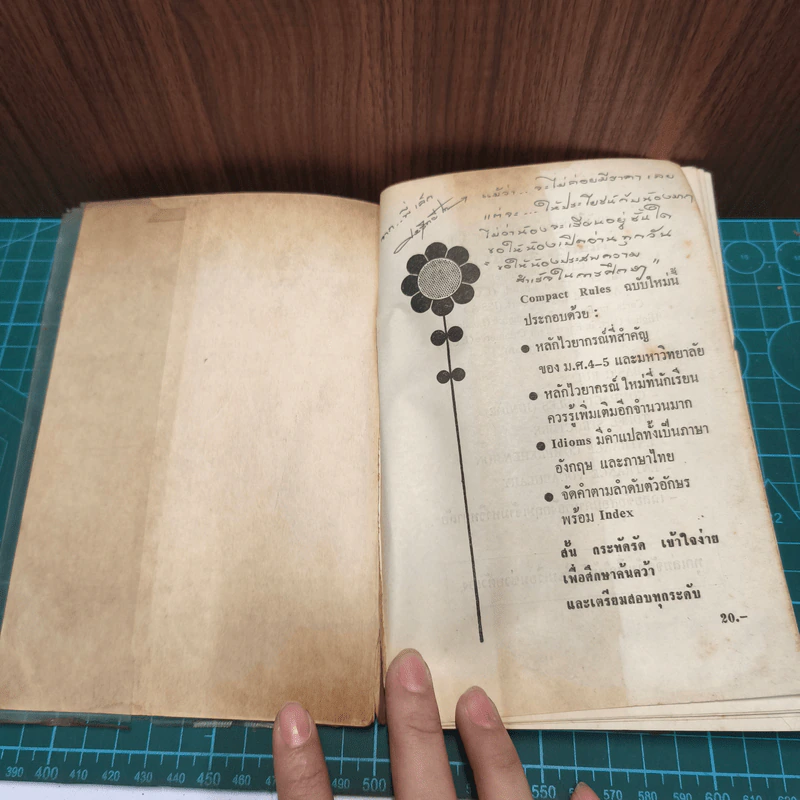 จาก...พี่เล็ก
แม้ว่า... จะไม่ค่อยมีราคา เลย
แต่จะ... ให้ประโยชน์กับน้องมาก
ไม่ว่าน้องจะเรียนอยู่ชั้นใด
ขอให้น้องเปิดอ่านทุกวัน
"ขอให้น้องประสพความ
สำเร็จในการศึกษา"
Compact Rules ฉบับใหม่นี้
ประกอบด้วย :
● หลักไวยากรณ์ที่สำคัญ
ของ ม.ศ.4-5 และมหาวิทยาลัย
● หลักไวยากรณ์ ใหม่ที่นักเรียน
ควรรู้เพิ่มเติมอีกจำนวนมาก
● Idioms มีคำแปลทั้งเป็นภาษา
อังกฤษ และภาษาไทย
● จัดคำตามลำดับตัวอักษร
พร้อม Index
สั้น กระทัดรัด เข้าใจง่าย
เพื่อศึกษาค้นคว้า
และเตรียมสอบทุกระดับ
20.-
390 400 410 420 450 460 470 480 490 500 550 560 570 580 590 600 610